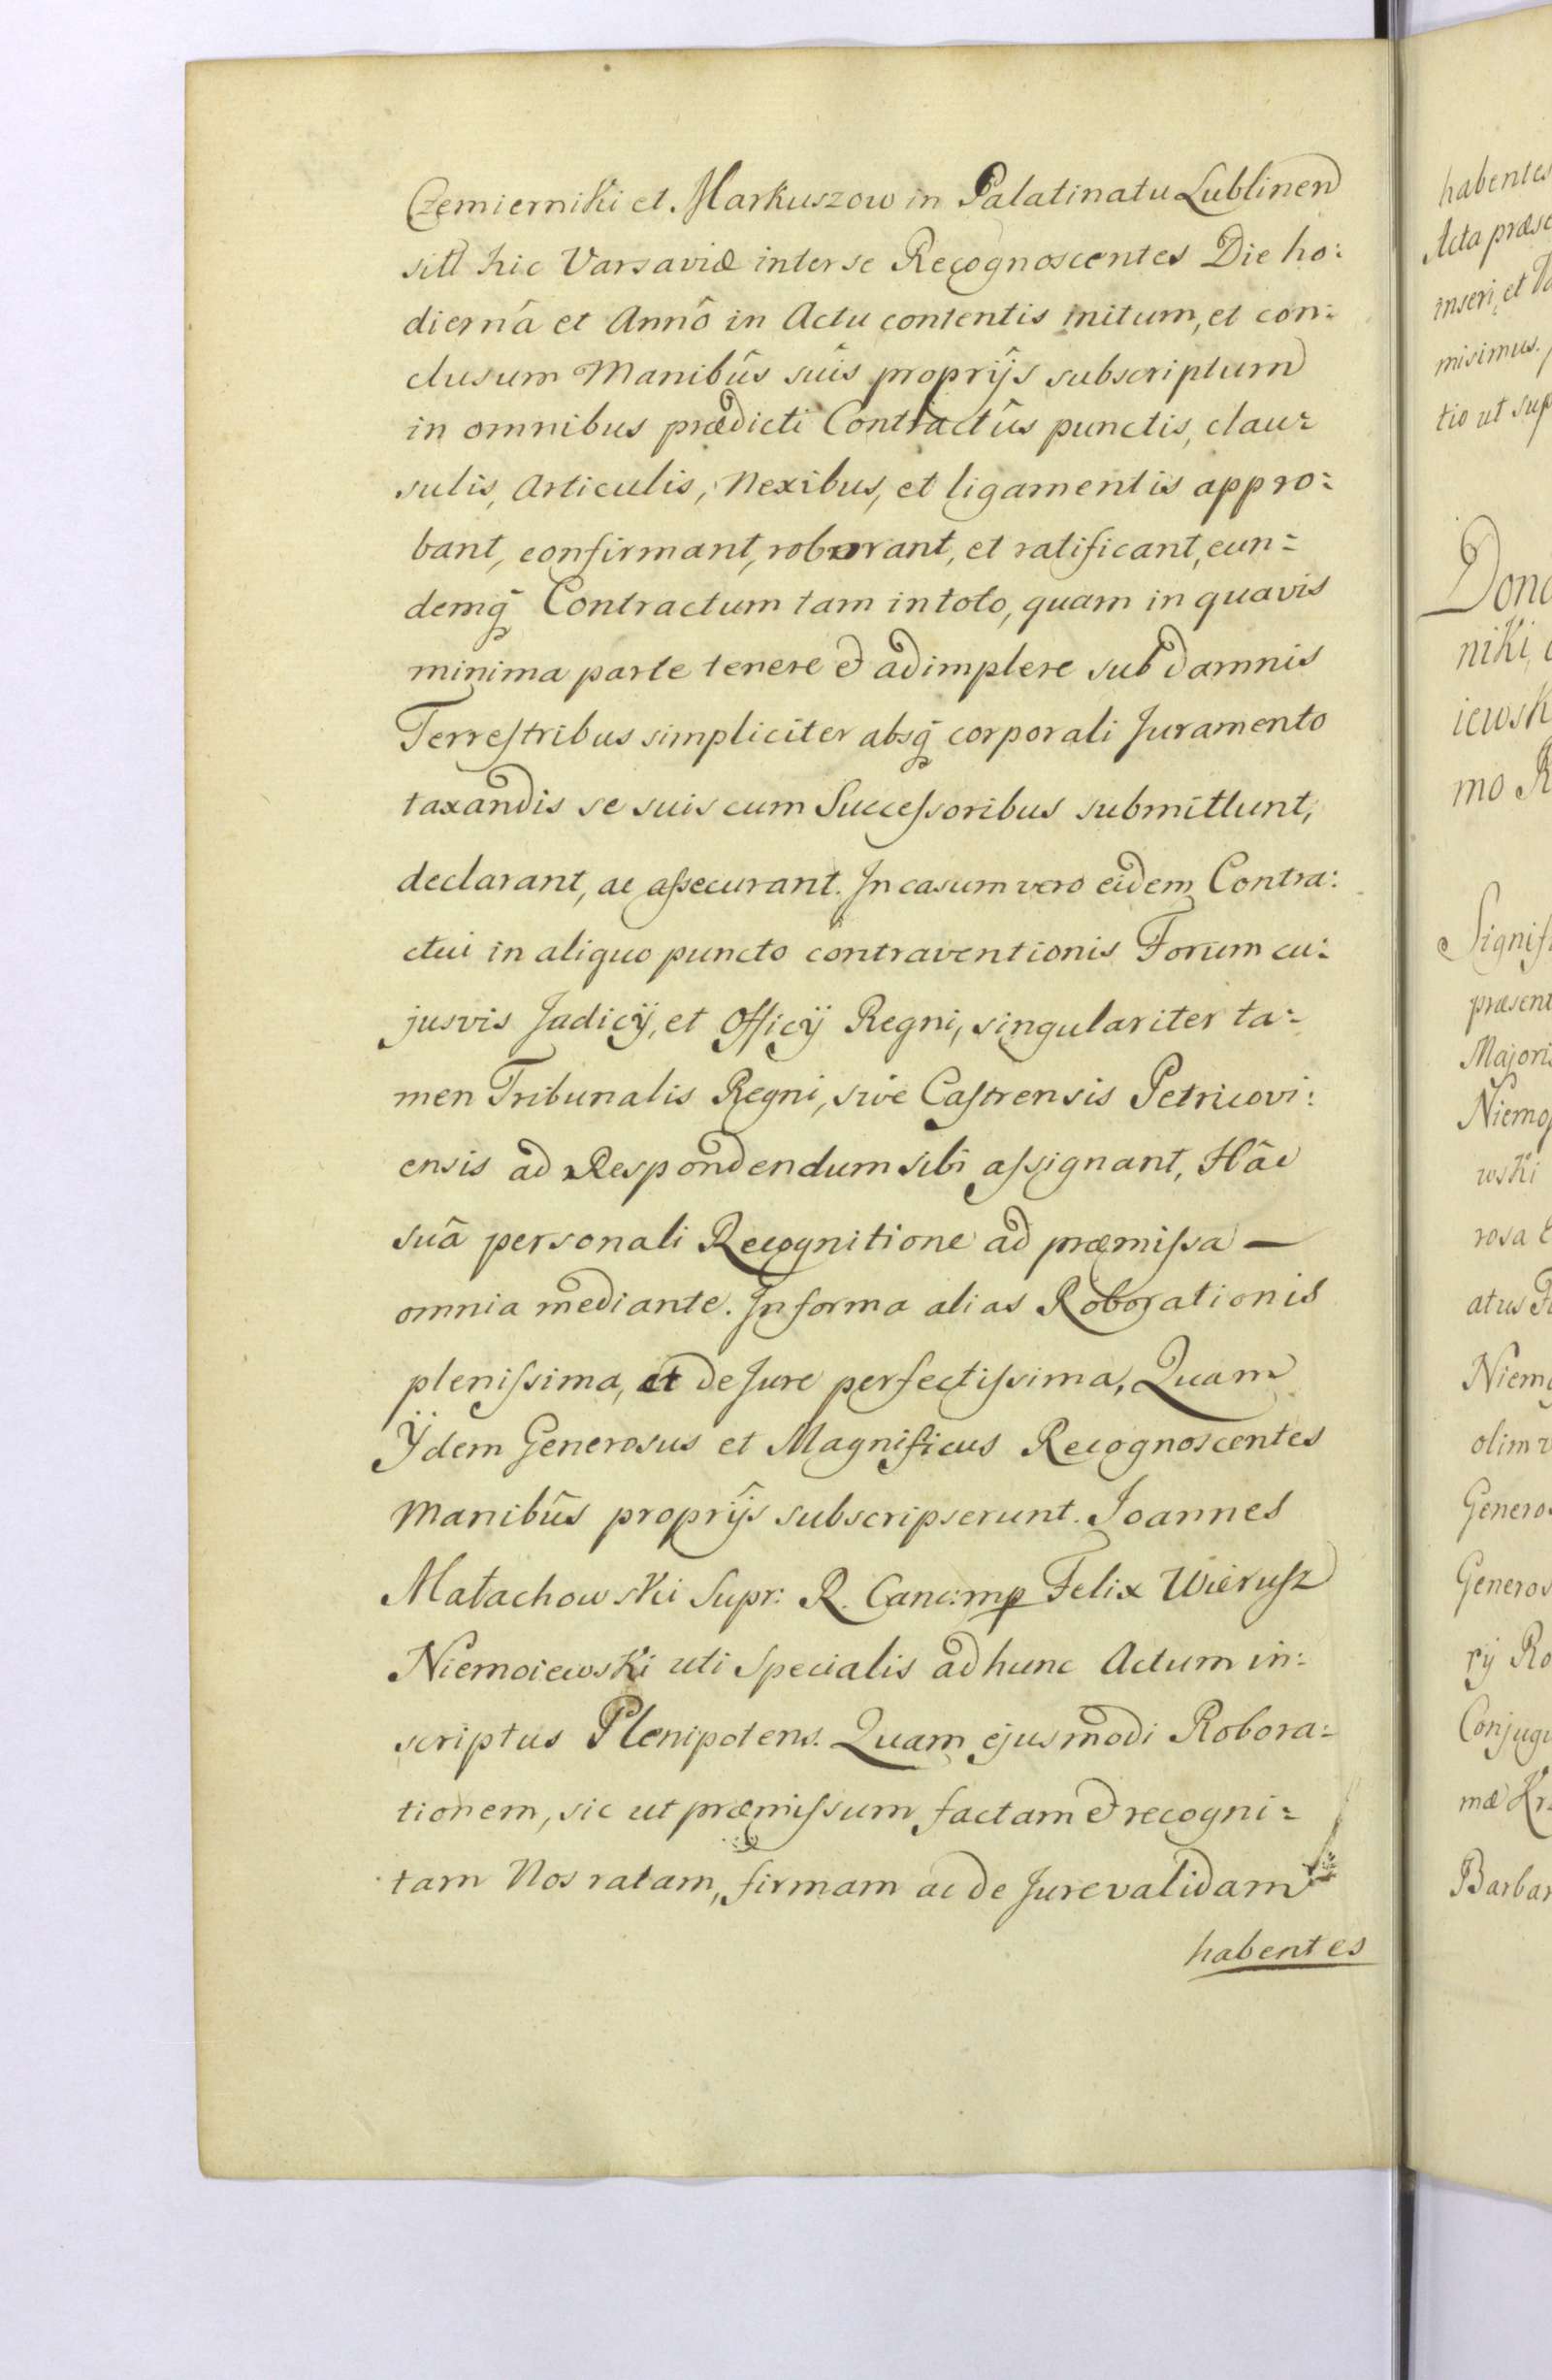 Czemierniki et Markuszow in Palatinatu Lublinen
sitt hic Varsaviæ inter se Recognoscentes Die ho:
diernâ et Annô in Actu contentis initum, et con:
clusum Manibûs suîs proprijs subscriptum
in omnibus prædicti Contractûs punctis, clau:
sulis, Articulis, Nexibus, et ligamentis appro:
bant, confirmant, roborant, et ratificant, eun:
demq̃ Contractum tam in toto, quam in quavis
minima parte tenere & adimplere sub damnis
Terreſtribus simpliciter absq̃ corporali Juramento
taxandis se suis cum Succeſsoribus submittunt,
declarant, ac aſsecurant. In casum vero eidem Contra:
ctui in aliquo puncto contraventionis Forum cu:
jusvis Judicÿ, et Officÿ Regni, singulariter ta:
men Tribunalis Regni, sive Caſtrensis Petricovi:
ensis ad Respondendum sibi aſsignant, Hâc
suâ personali Recognitione ad præmiſsa —
omnia mediante. In forma alias Roborationis
pleniſsima, et de Jure perfectiſsima, Quam
Ÿdem Generosus et Magnificus Recognoscentes
Manibûs proprîjs subscripserunt. Joannes
Małachowski Supr: R. Canc: mp Felix Wieruſz
Niemoiewski uti Specialis ad hunc Actum in:
scriptus Plenipotens. Quam ejusmodi Robora:
tionem, sic ut præmiſsum factam & recogni:
tam Nos ratam, firmam ac de Jure validam
habentes
habentes
Acta præsc
inseri, et
misimus.
tio ut sup
Dona
niki,
iewsk
mo R
Signifi
præsent
Majoris
Niemoj
wski
rosa
atus
Niemo
olim
Genero
Generos
rÿ Ro
Conjugu
mæ Kr
Barbar